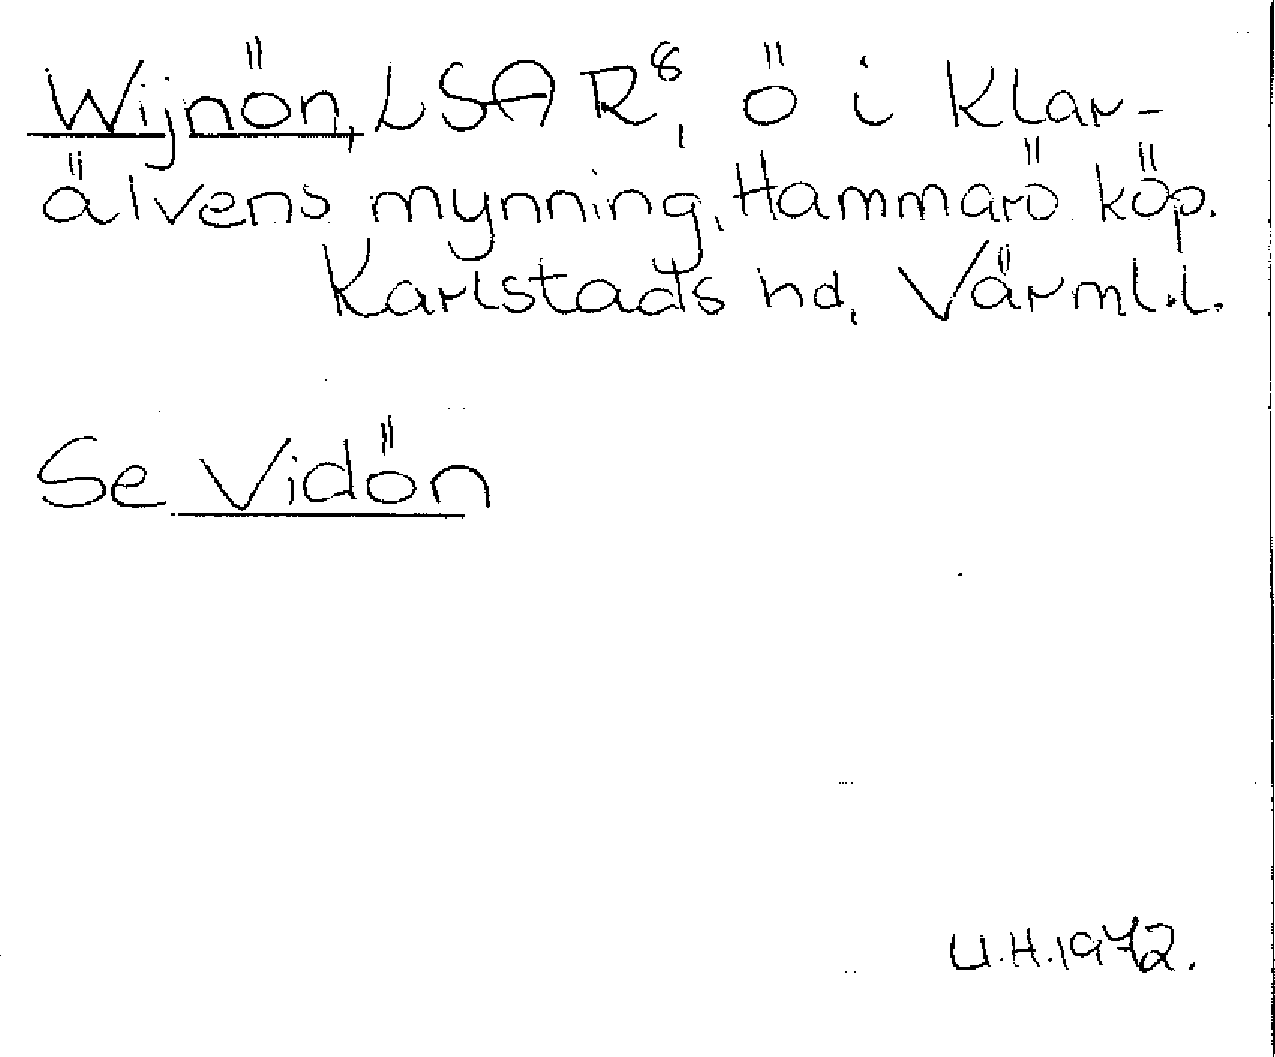 Wijnön, LSA R⁸, ö i Klar-
älvens mynning, Hammarö köp.
Karlstads hd, Värml.l.
Se Vidön
U.H.1972.